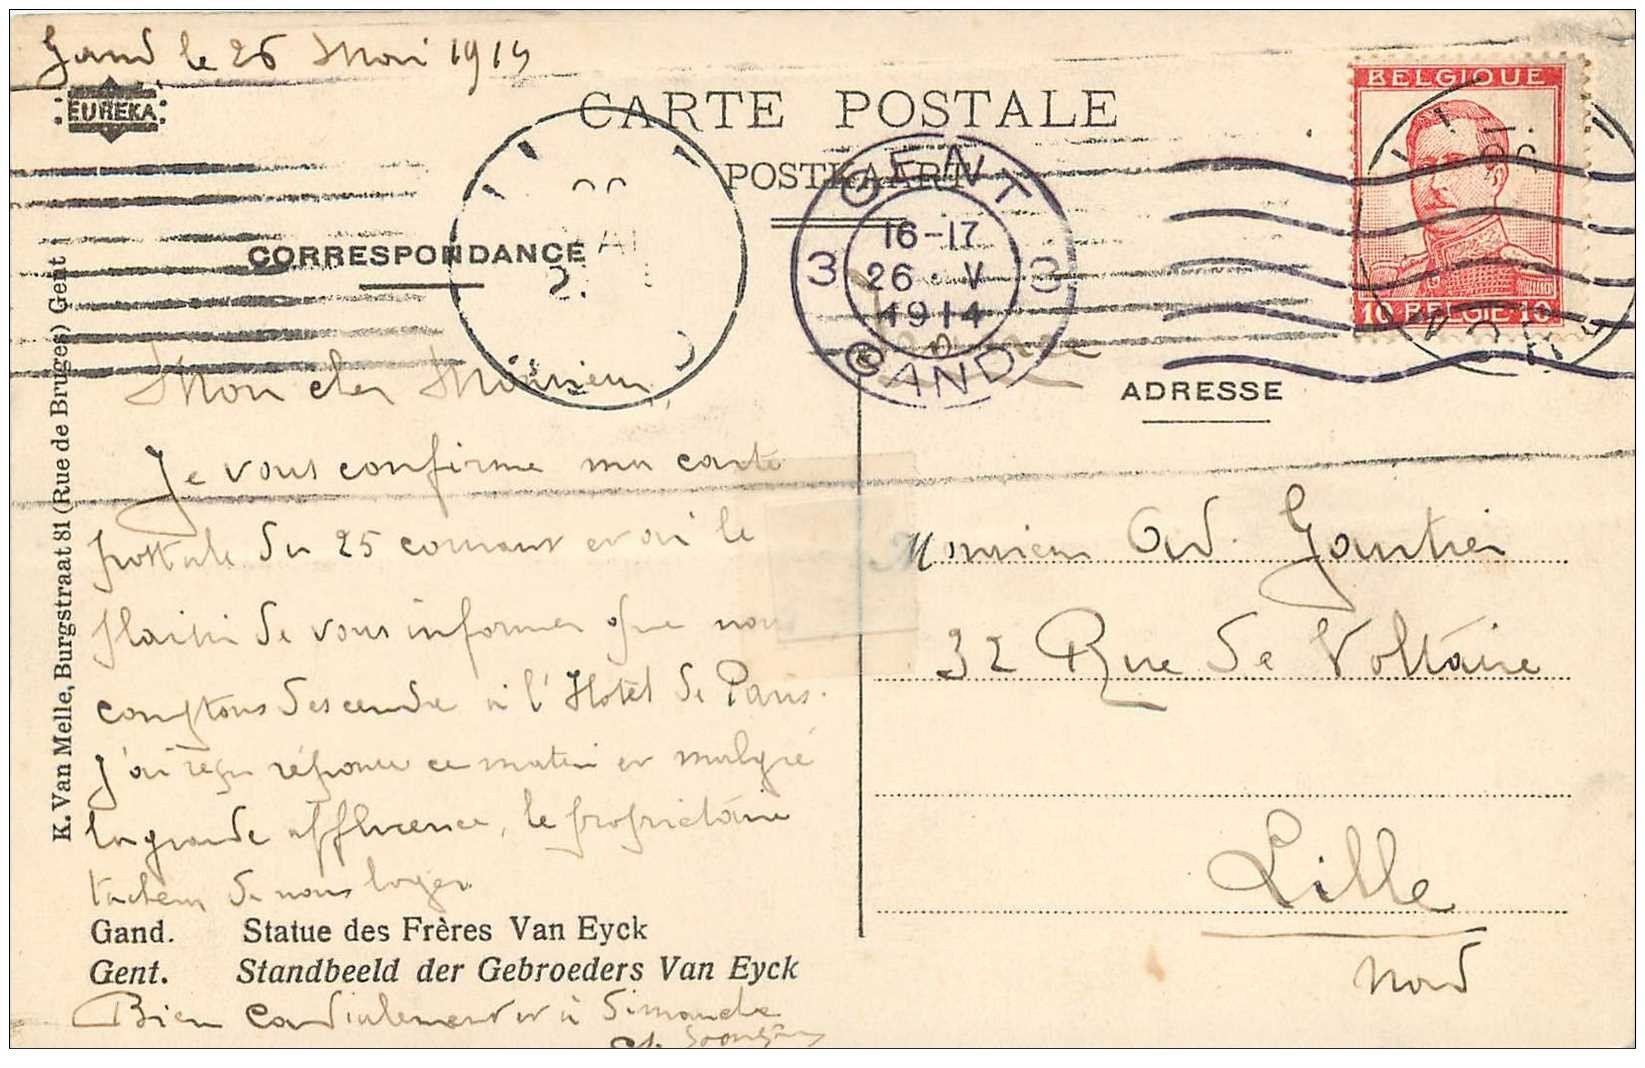 Gand le 26 Mai 1914
EUREKA
CARTE POSTALE
POSTKAART
BELGIQUE
10 BELGIE 10
GENT
3 16-17 3
26 · V
1914
GAND
CORRESPONDANCE
ADRESSE
Mon cher Monsieur,
Je vous confirme ma carte
postale du 25 courant et ai le
plaisir de vous informer que nous
comptons descendre à l'Hotel de Paris.
J'ai reçu réponse ce matin et malgré
la grande affluence, le propriétaire
tachera de nous loger.
Gand. Statue des Frères Van Eyck
Gent. Standbeeld der Gebroeders Van Eyck
Bien cordialement et à dimanche
Monsieur Ad. Gautier
32 Rue de Voltaire
Lille
Nord
K. Van Melle, Burgstraat 81 (Rue de Bruges) Gent